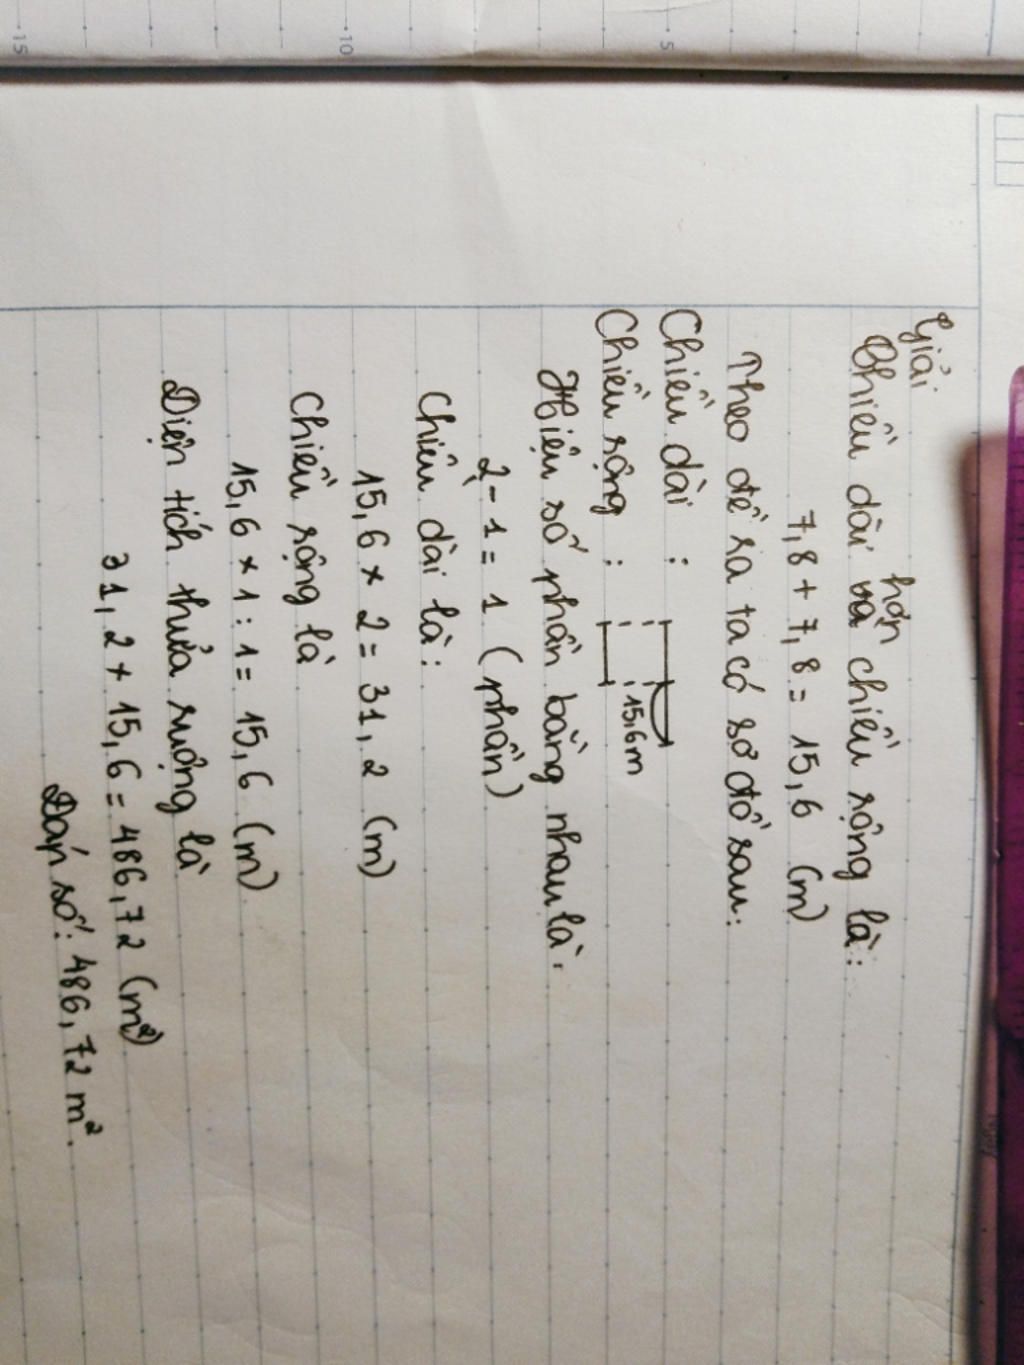 Giải
Chiều dài hơn chiều rộng là:
7,8 + 7,8 = 15,6 (m)
Theo đề ra ta có sơ đồ sau:
Chiều dài :
15,6m
Chiều rộng :
Hiệu số phần bằng nhau là:
2 - 1 = 1 (phần)
Chiều dài là:
15,6 x 2 = 31,2 (m)
Chiều rộng là
15,6 x 1 : 1 = 15,6 (m)
Diện tích thửa ruộng là
31,2 x 15,6 = 486,72 (m²)
Đáp số: 486,72 m².
5
10
15